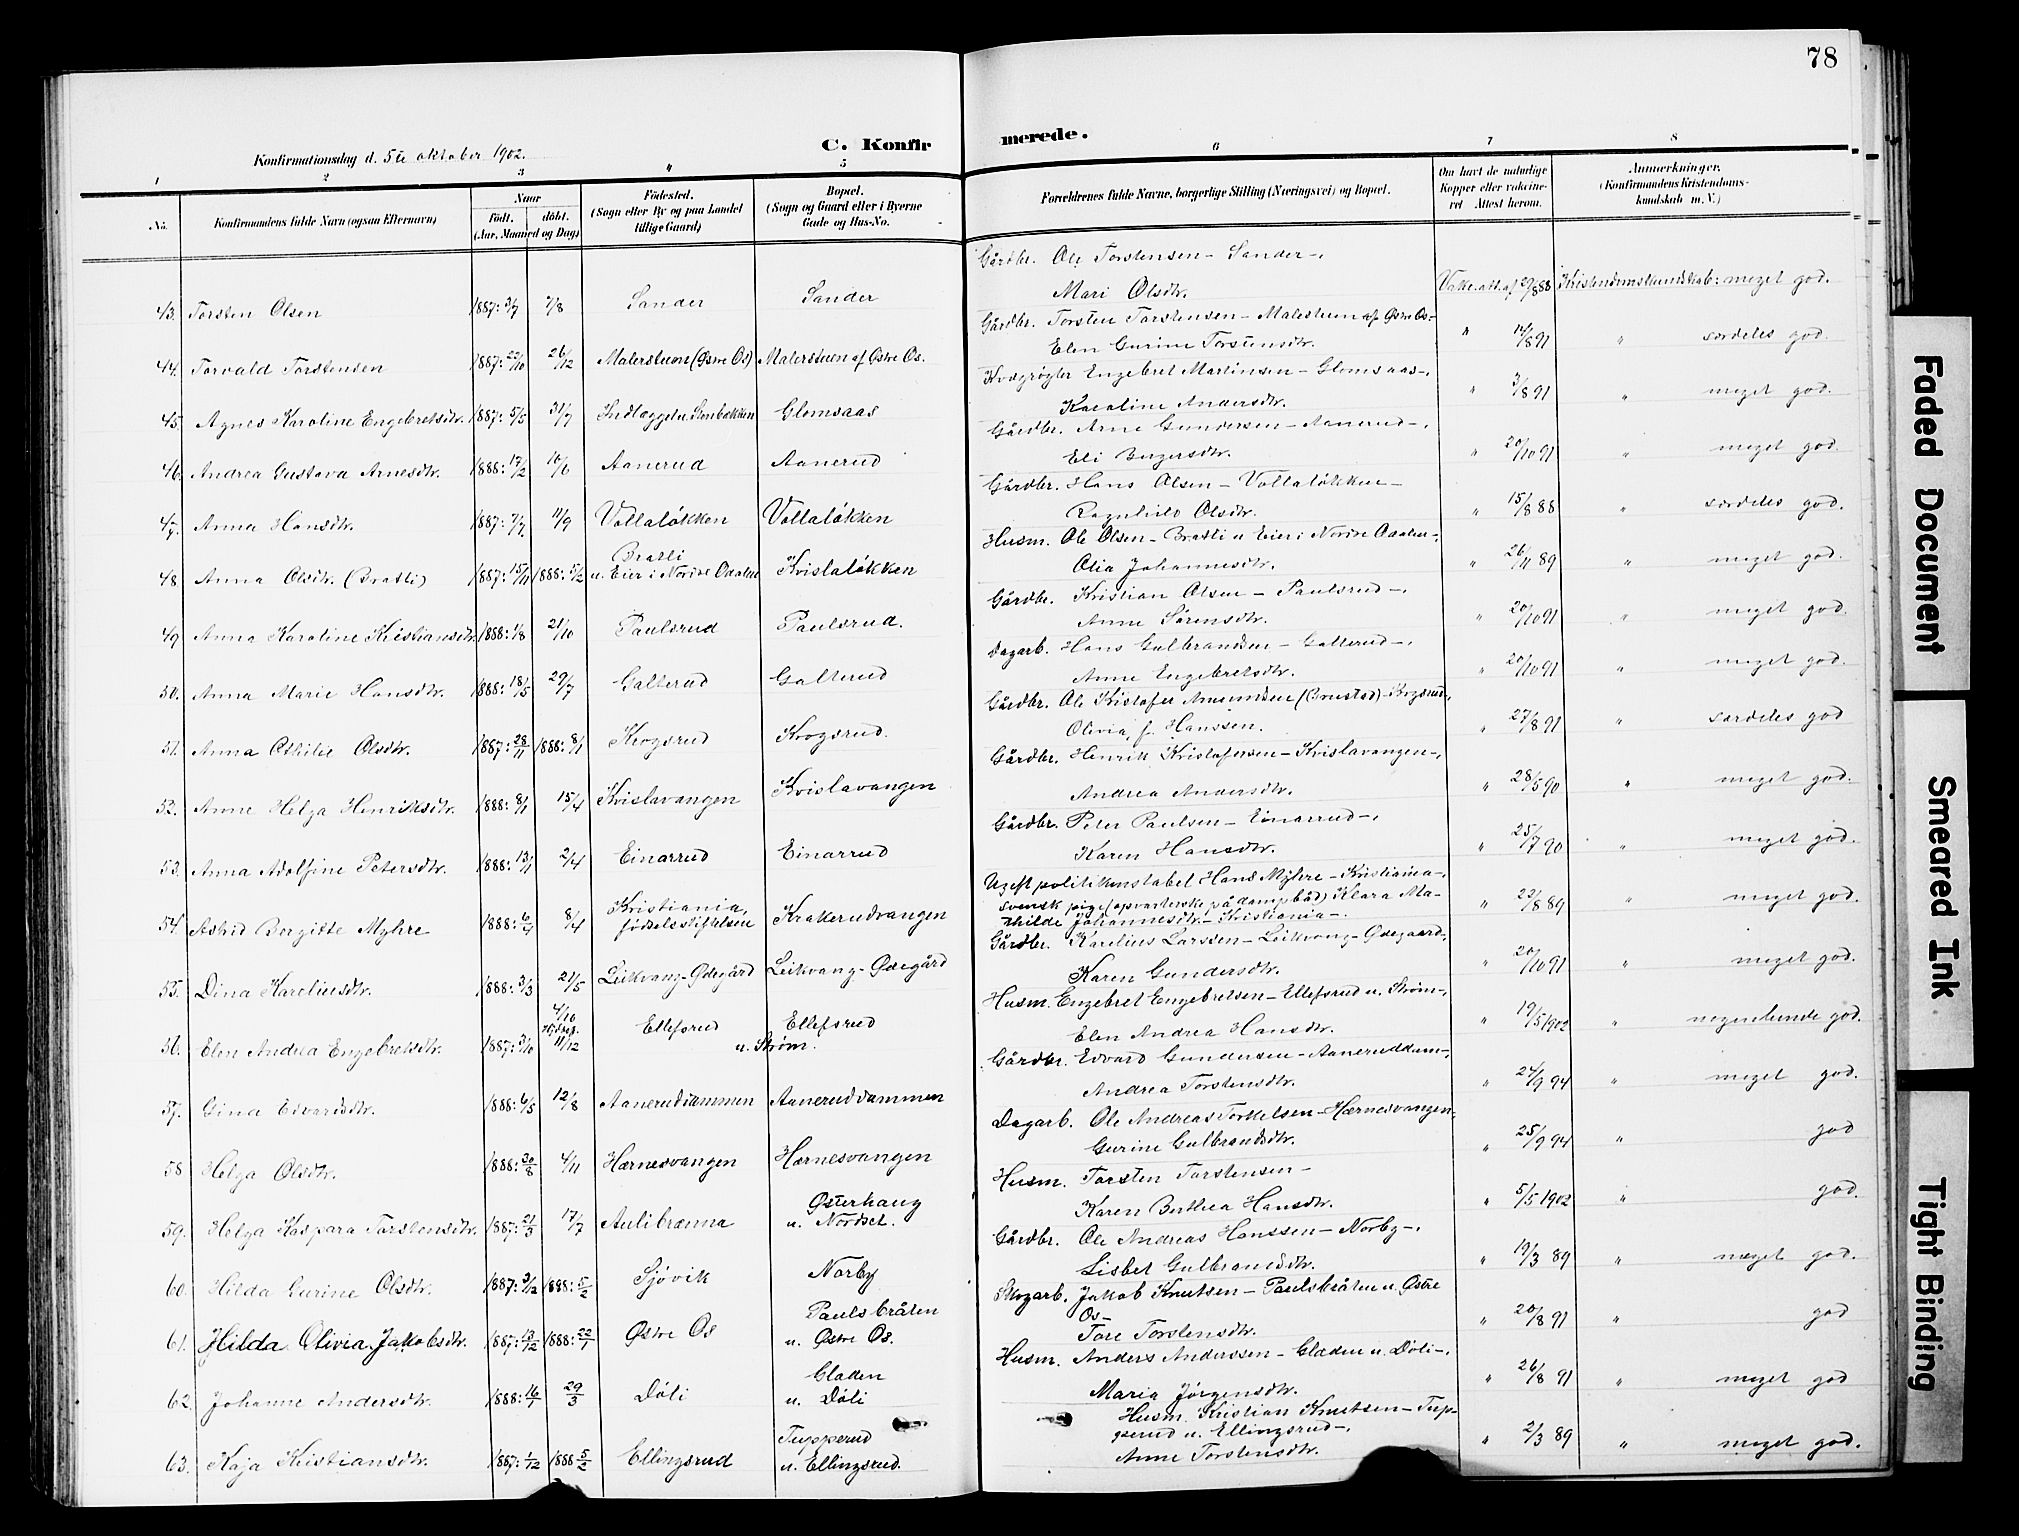 78
C. Konfir
merede.
Konfirmationsdag d. 5te oktober 1902.
1 2 3 4 5 6 7 8
No.
Konfirmandens fulde Navn (ogsaa Efternavn)
Naar
födt. döbt.
(Aar, Maaned og Dag)
Födested.
(Sogn eller By og paa Landet
tillige Gaard)
Bopæl.
(Sogn og Gaard eller i Byerne
Gade og Hus-No.
Forældrenes fulde Navne, borgerlige Stilling (Næringsvei) og Bopæl.
Om havt de naturlige
Kopper eller vakcine-
ret Attest herom.
Anmerkninger.
(Konfirmandens Kristendoms-
kundskab m. V.)
Gårdbr. Ole Torstensen - Sander -,
43. Torsten Olsen 1887: 3/7 7/8 Sander Sander Mari Olsdtr. Vakc. att. af 29/8 88 Kristendomskundskab: meget god.
Gårdbr. Torsten Torstensen - Malerstuen af Østre Os -
44. Torvald Torstensen 1887: 22/10 26/12 Malerstuen (Østre Os) Malerstuen af Østre Os. Elen Gurine " 14/8 91 " særdeles god.
Engebret Martinsen - Glomsaas -,
45. Agnes Karoline Engebretsdtr. 1887: 5/5 31/7 Glomsaas Karoline Andersdtr. " 3/8 91 " meget god.
Gårdbr. Arne Gundersen - Aanerud -,
46. Andrea Gustava Arnesdtr. 1888: 17/2 10/6 Aanerud Aanerud Eli Birgersdtr. " 20/10 91 " meget god.
Gårdbr. Hans Olsen - Vollaløkken -
47. Anna Hansdtr. 1887: 7/7 11/9 Vollaløkken Vollaløkken Ragnhild Olsdtr. " 15/8 88 " særdeles god.
Husm. Ole Olsen - Bratli u. Eier i Nordre Odalen -,
Bratli
48. Anna Olsdtr. (Bratli) 1887: 15/11 1888: 5/2 u. Eier i Nordre Odalen Kvislaløkken Olia Johannesdtr. " 26/11 89 " meget god.
Gårdbr. Kristian Olsen - Paulsrud -,
49 Anna Karoline Kristiansdtr. 1888: 1/8 21/10 Paulsrud Paulsrud. Anne Sørensdtr. " 20/10 91 " meget god.
Dagarb. Hans Gulbrandsen - Galterud -,
50. Anna Marie Hansdtr. 1888: 18/5 29/7 Galterud Galterud Anne Engebretsdtr. " 20/10 91 " meget god.
Gårdbr. Ole Kristofer Amundsen (Brustad) - Krogsrud -,
51. Anna Othilie Olsdtr. 1887: 28/11 1888: 8/1 Krogsrud Krogsrud. Olivia, f. Hanssen. " 27/8 91 " særdeles god
Gårdbr. Henrik Kristofersen - Kvislavangen -,
52. Anne Helga Henriksdtr. 1888: 8/1 15/4 Kvislavangen Kvislavangen Andrea Andersdtr. " 28/5 90 " meget god.
Gårdbr. Peter Paulsen - Einarrud -,
53. Anna Adolfine Petersdtr. 1888: 13/1 2/4 Einarrud Einarrud Karen Hansdtr. " 25/7 90 " meget god.
Ugift politikonstabel Hans Myhre - Kristiania -,
svensk pige (opvarterske på dampbåd) Klara Ma-
54. Astrid Borgitte Myhre 1888: 6/4 8/4 Kristiania, fødselsstiftelsen Krakerudvangen thilde Johannesdtr. - Kristiania -. " 22/8 89 " meget god.
Gårdbr. Karelius Larssen - Leikvang-Ødegaard,
55. Dina Kareliusdtr. 1888: 3/3 21/5 Leikvang-Ødegård Leikvang-Ødegård Karen Gundersdtr. " 20/10 91 " meget god.
Husm. Engebret Engebretsen - Ellefsrud u. Strøm -,
4/10
56. Elen Andrea Engebretsdtr. 1887: 3/10 11/12 Ellefsrud Ellefsrud u. Strøm. Elen Andrea Hansdtr. " 19/5 1902 " nogenlunde god.
Gårdbr. Edvard Gundersen - Aaneruddam -,
57. Gina Edvardsdtr. 1888: 6/5 12/8 Aaneruddammen Aaneruddammen Andrea Torstensdtr. " 24/9 94 " meget god.
Dagarb. Ole Andreas Torkelsen - Hærnesvangen -
58 Helga Olsdtr. 1888: 30/8 4/11 Hærnesvangen Hærnesvangen Gurine Gulbrandsdtr. " 25/9 94 " god
Husm. Torsten Torstensen -
59. Helga Kaspara Torstensdtr. 1887: 21/3 17/7 Aulibrænna Østerhaug u. Nordset. Karen Berthea Hansdtr. " 5/5 1902 " god.
Gårdbr. Ole Andreas Hanssen - Norby -,
60. Hilda Gurine Olsdtr. 1887: 3/12 1888: 5/2 Sjøvik Norby Lisbet Gulbrandsdtr. " 19/3 89 " meget god.
Skogarb. Jakob Knutsen - Paulsbråten u. Østre
Os -
61. Hilda Olivia Jakobsdtr. 1887: 13/12 1888: 22/1 Østre Os Paulsbråten u. Østre Os. Tore Torstensdtr. " 20/8 91 " god
Husm. Anders Anderssen - Gladen u. Døli -,
62. Johanne Andersdtr. 1888: 16/1 29/3 Døli Gladen u. Døli Maria Jørgensdtr. " 26/8 91 " meget god
Husm. Kristian Knutsen - Tup-
perud u. Ellingsrud -,
63. Kaja Kristiansdtr. 1887: 1/12 1888 5/2 Ellingsrud Tupperud u. Ellingsrud. Anne Torstensdtr. " 2/3 89 " meget god.
Faded Document
Smeared Ink
Tight Binding